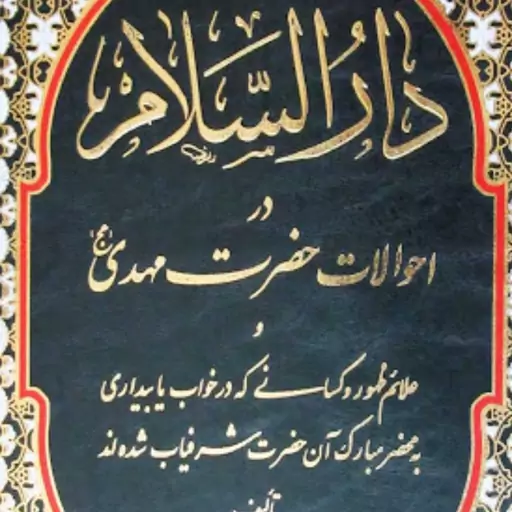 دارُ السَّلام
در
احوالات حضرت مهدی (عج)
و
علائم ظهور و کسانی که در خواب یا بیداری
به محضر مبارک آن حضرت شرفیاب شده اند
تألیف